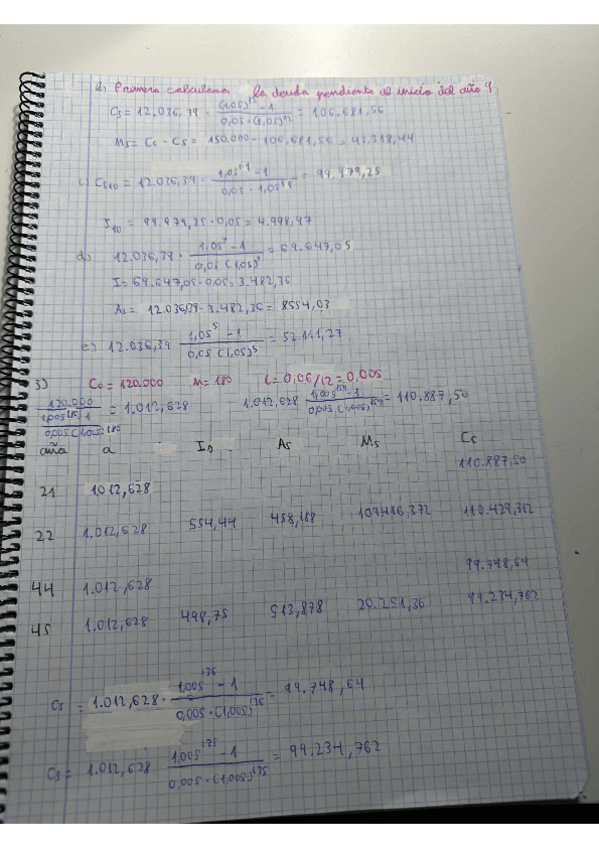 b) Primero calculamos la deuda pendiente al inicio del año 9
Cs = 12.036,39 · (1,05)¹² - 1 / 0,05 · (1,05)¹² = 106.681,56
Ms = Co - Cs = 150.000 - 106.681,56 = 43.318,44
c) Cs10 = 12.036,39 · 1,05¹¹ - 1 / 0,05 · 1,05¹¹ = 99.979,25
I10 = 99.979,25 · 0,05 = 4.998,97
d) 12.036,39 · 1,05⁷ - 1 / 0,05 (1,05)⁷ = 69.647,05
I = 69.647,05 · 0,05 = 3.482,36
As = 12.036,39 - 3.482,36 = 8554,03
e) 12.036,39 1,05⁵ - 1 / 0,05 (1,05)⁵ = 52.111,27
3) Co = 120.000 n = 180 i = 0,06/12 = 0,005
120.000 / (1,005)¹⁸⁰ - 1 / 0,005 (1,005)¹⁸⁰ = 1.012,628 1.012,628 1,005¹⁵⁹ - 1 / 0,005 (1,005)¹⁵⁹ = 110.887,50
año a Is As Ms Cs
110.887,50
21 1.012,628
22 1.012,628 554,44 458,188 109416,372 110.429,312
99.748,64
44 1.012,628
45 1.012,628 498,75 513,878 20.251,36 99.234,762
Cs = 1.012,628 · 1,005¹³⁶ - 1 / 0,005 · (1,005)¹³⁶ = 99.748,64
Cs = 1.012,628 1,005¹³⁵ - 1 / 0,005 · (1,005)¹³⁵ = 99.234,762